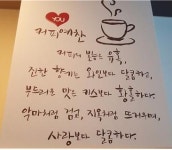 YOU
커피예찬
커피의 본능은 유혹,
진한 향기는 와인보다 달콤하고,
부드러운 맛은 키스보다 황홀하다.
악마처럼 검고, 지옥처럼 뜨거우며,
사랑보다 달콤하다.